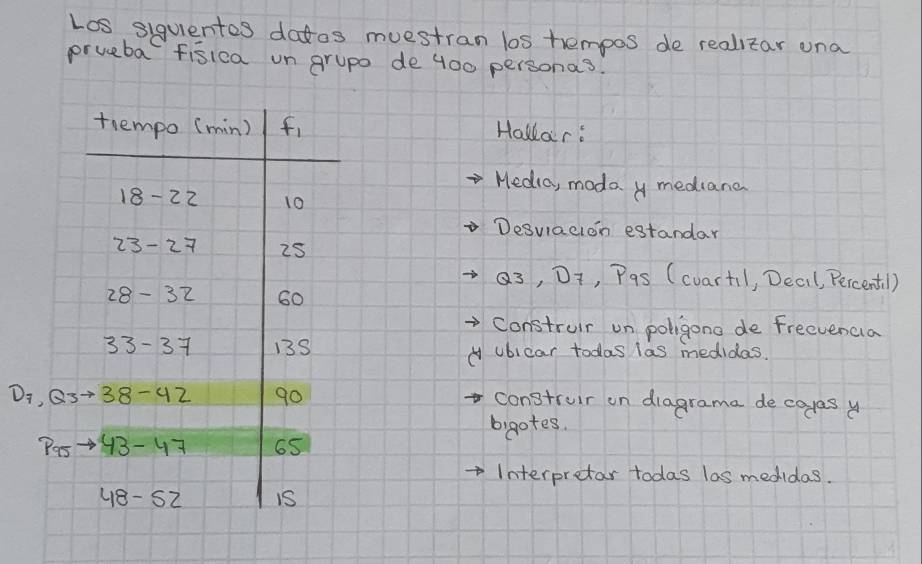 Los siguientes datos muestran los tiempos de realizar una
prueba física un grupo de 400 personas.
tiempo (min) fi
18-22 10
23-27 25
28-32 60
33-37 135
D7, Q3→ 38-42 90
P95 → 43-47 65
48-52 15
Hallar:
→ Media, moda y mediana
→ Desviación estandar
→ Q3, D7, P95 (cuartil, Decil, Percentil)
→ Construir un poligono de frecuencia
y ubicar todas las medidas.
→ Construir un diagrama de cajas y
bigotes.
→ Interpretar todas las medidas.